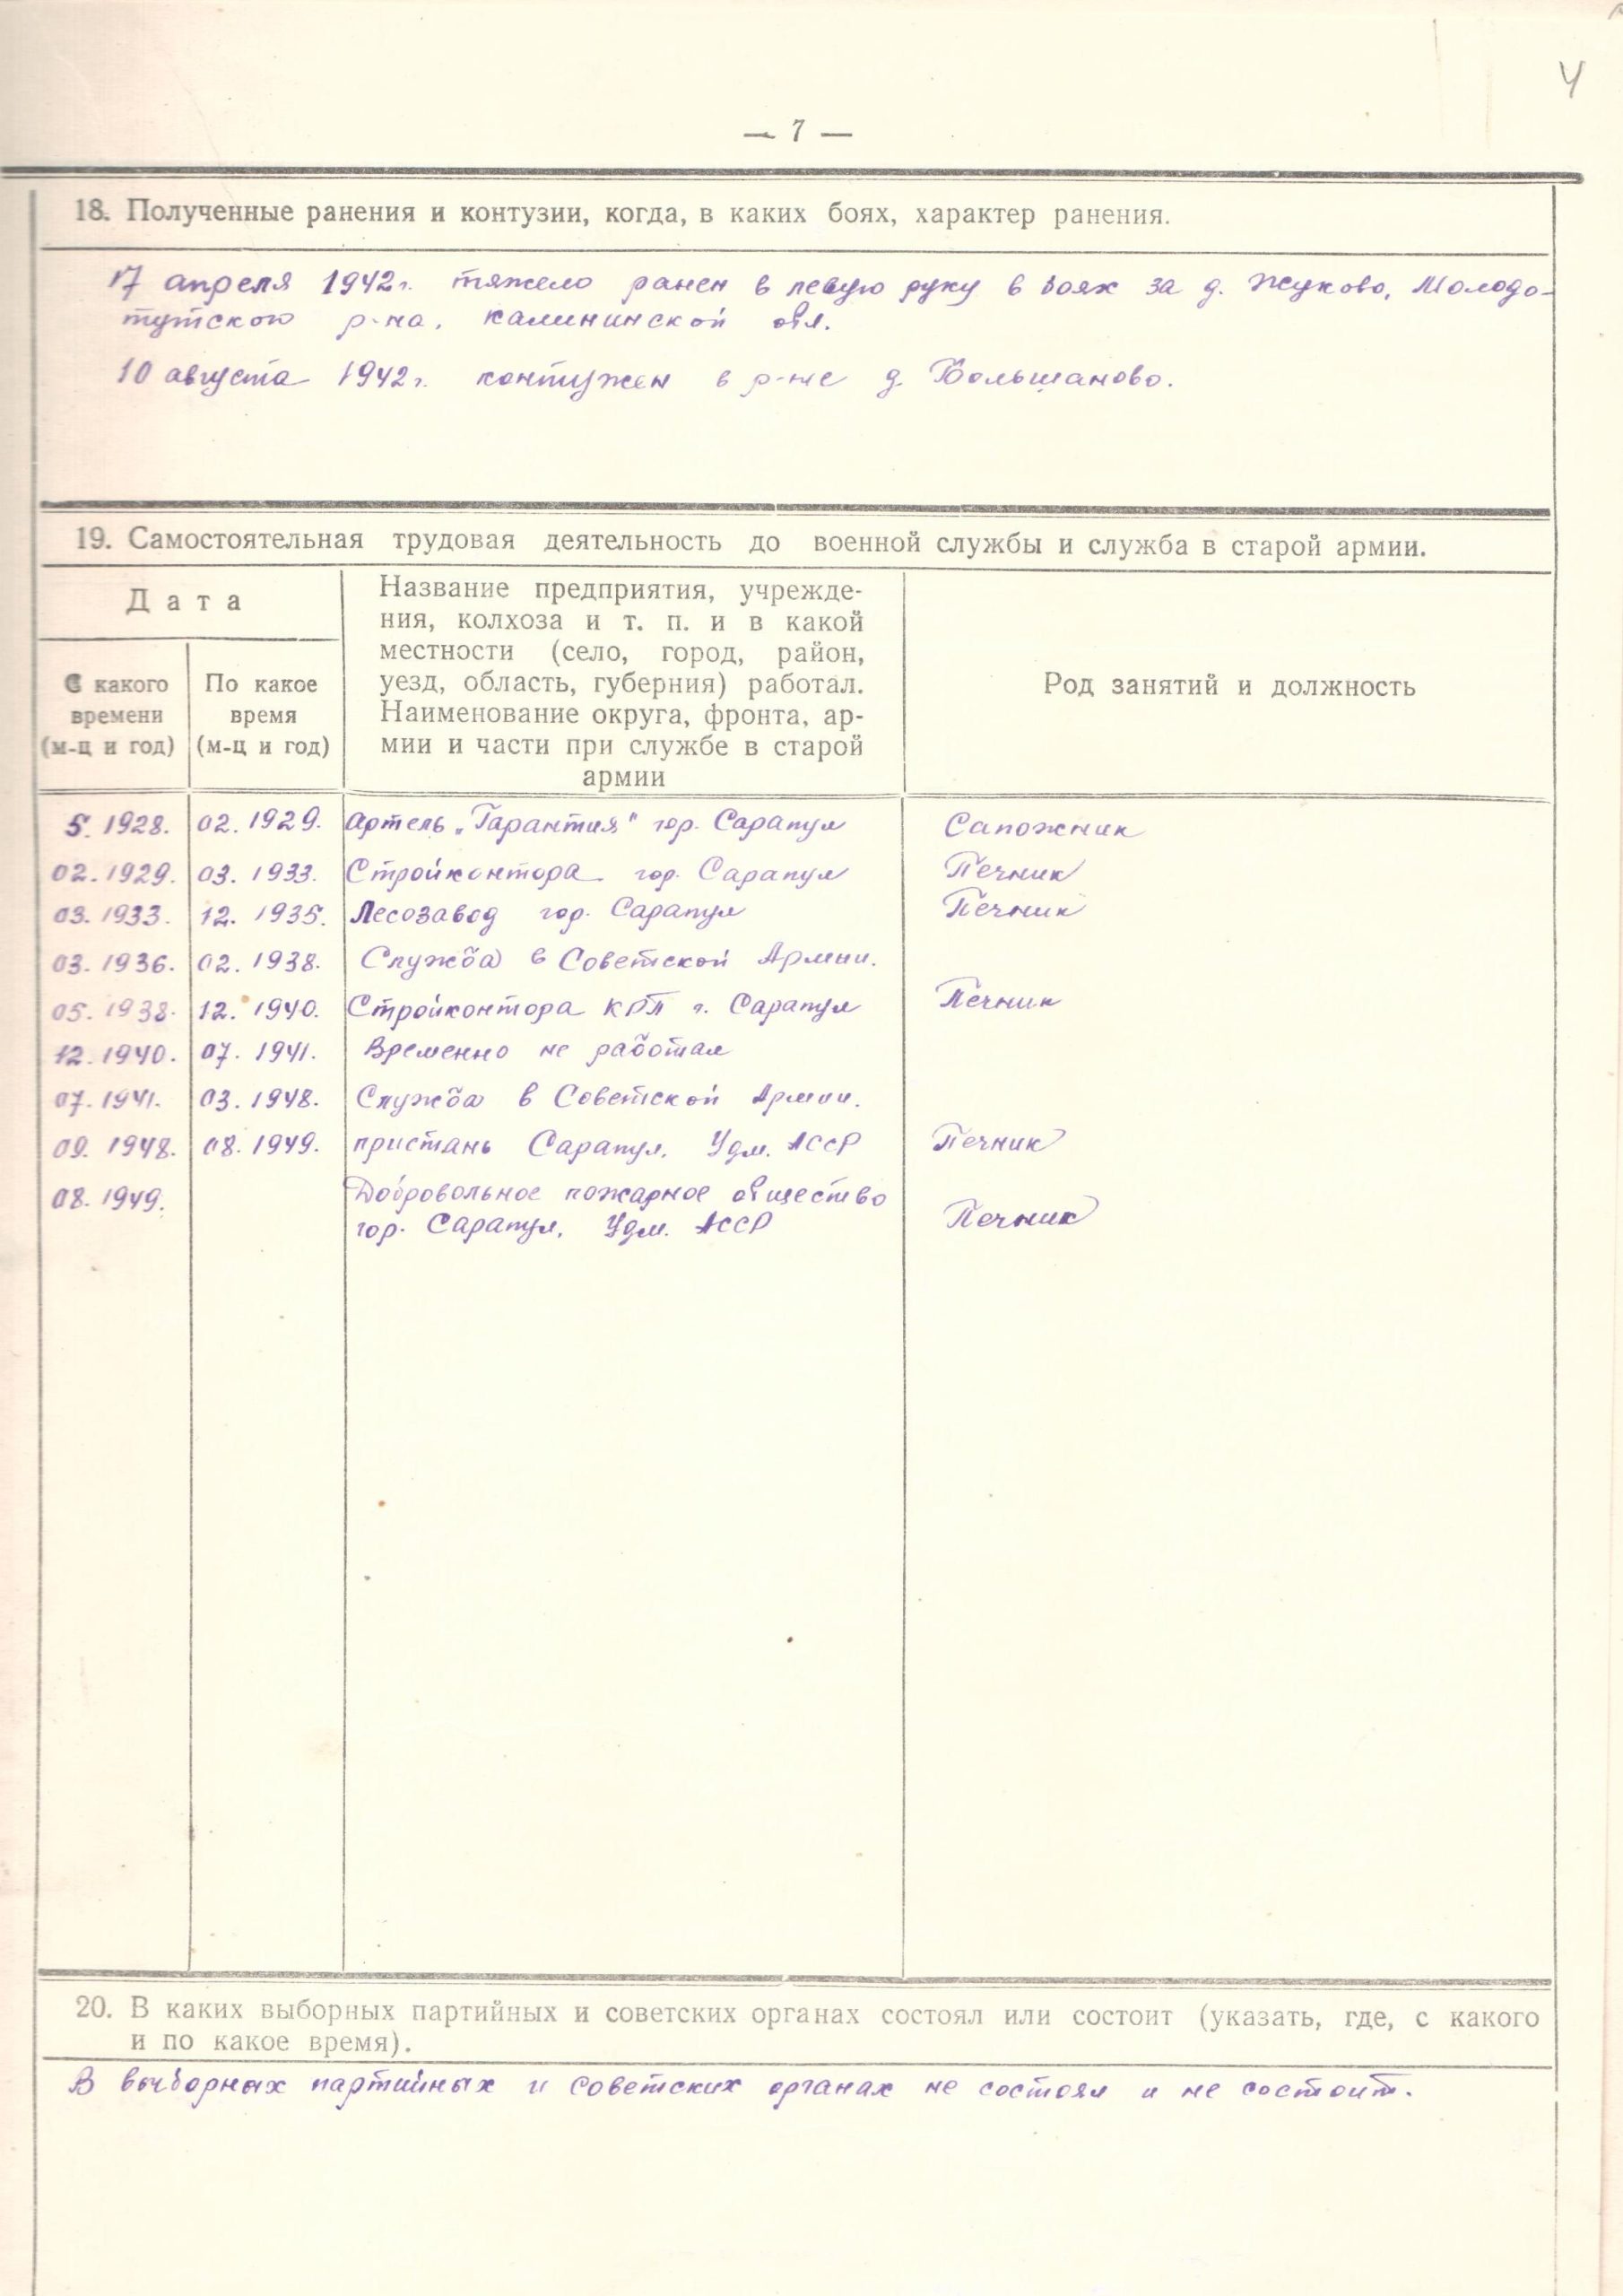 4
— 7 —
18. Полученные ранения и контузии, когда, в каких боях, характер ранения.
17 апреля 1942г. тяжело ранен в левую руку в боях за д. Жуково, Молодо-
тутского р-на, Калининской обл.
10 августа 1942г. контужен в р-не д. Большаново.
19. Самостоятельная трудовая деятельность до военной службы и служба в старой армии.
Дата
С какого времени (м-ц и год)
По какое время (м-ц и год)
Название предприятия, учрежде-
ния, колхоза и т. п. и в какой
местности (село, город, район,
уезд, область, губерния) работал.
Наименование округа, фронта, ар-
мии и части при службе в старой
армии
Род занятий и должность
5. 1928. 02. 1929. Артель „Гарантия" гор. Сарапул Сапожник
02. 1929. 03. 1933. Стройконтора гор. Сарапул Печник
03. 1933. 12. 1935. Лесозавод гор. Сарапул Печник
03. 1936. 02. 1938. Служба в Советской Армии.
05. 1938. 12. 1940. Стройконтора КРП г. Сарапул Печник
12. 1940. 07. 1941. Временно не работал
07. 1941. 03. 1948. Служба в Советской Армии.
09. 1948. 08. 1949. пристань Сарапул, Удм. АССР Печник
08. 1949. Добровольное пожарное общество
гор. Сарапул, Удм. АССР Печник
20. В каких выборных партийных и советских органах состоял или состоит (указать, где, с какого
и по какое время).
В выборных партийных и советских органах не состоял и не состоит.